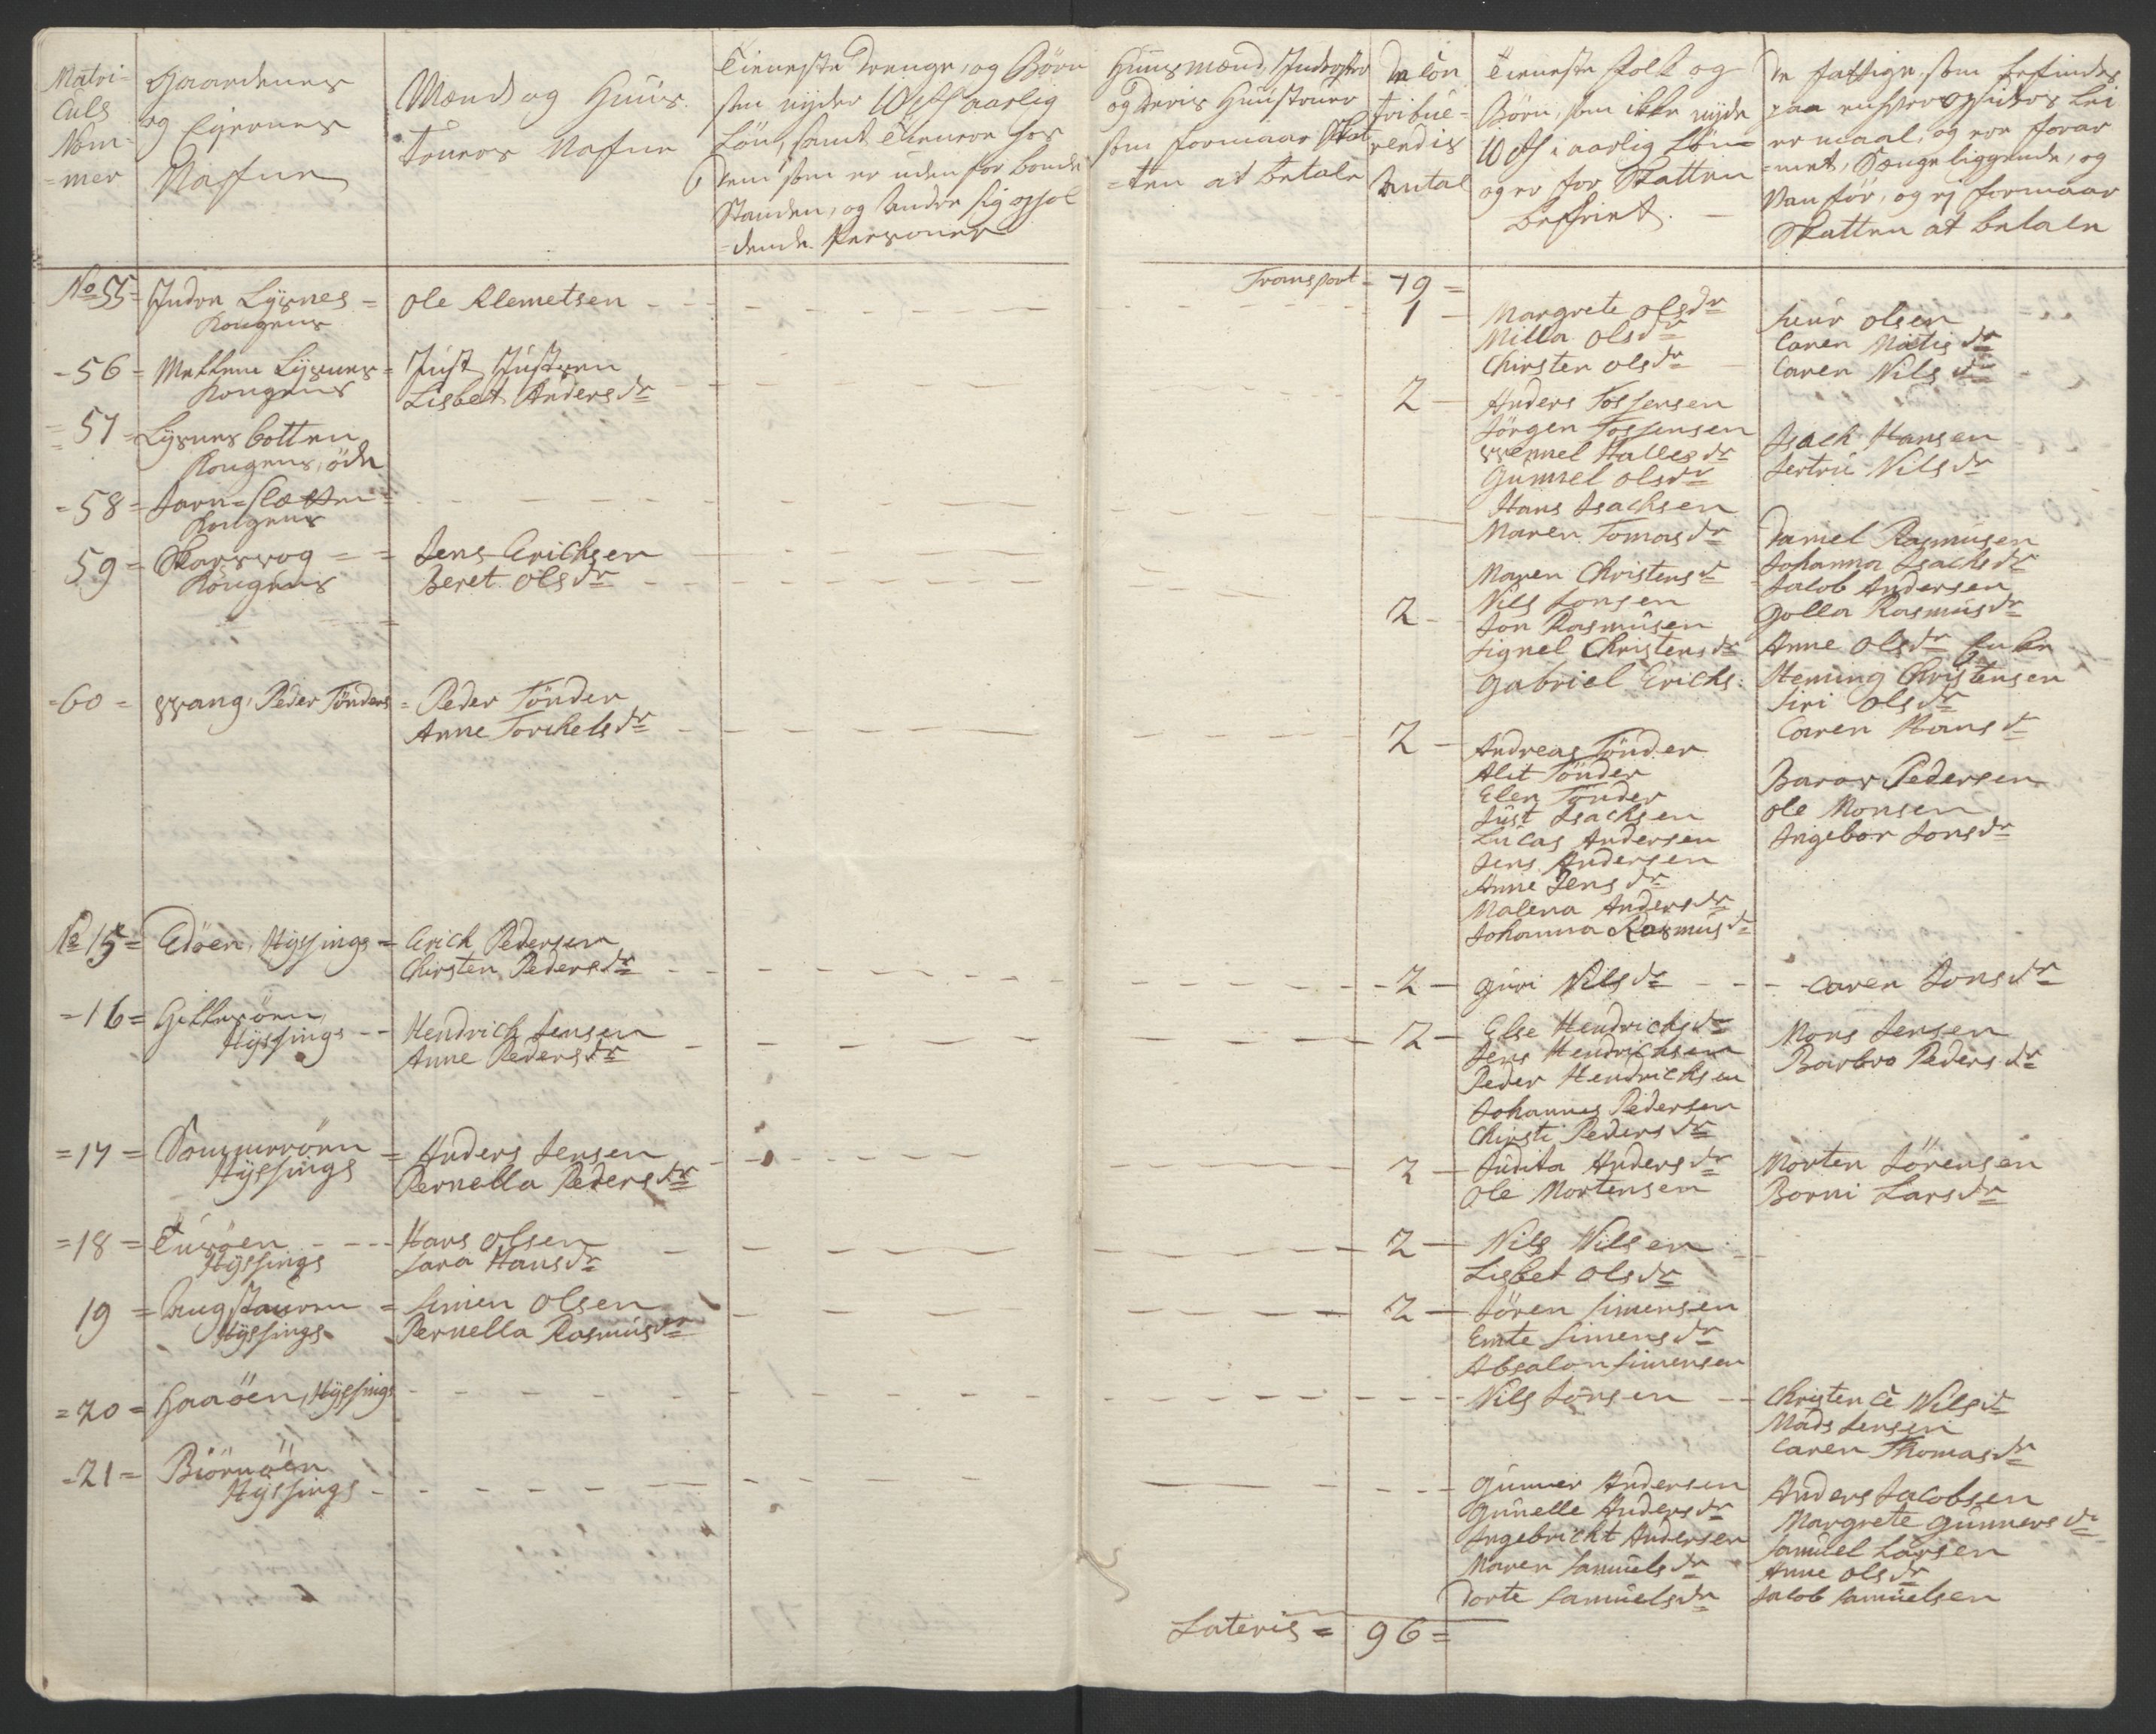 Matri=
culs
Nom=
=mer
Gaardenes
og Ejernes
Nafne
Mænd og Huus
Koners Nafne
Tieneste Drenge, og Børn
som nyder 10 rdl aarlig
Løn, samt Tienere hos
Dem som er uden for bonde
Standen, og andre sig ophol
=dende Personer
Huusmænd, Inderster
og deris Huustruer
som formaar Skat
=ten at betale
De Con
tribue=
rendis
Antal
Tieneste folk og
Børn, som ikke nyde
10 rdl i aarlig Løn
og er for Skatten
befriet.
De fattige, som befindes
paa
er maal, og ere forar
=met, Senge liggende, og
Vanfør, og ej formaar
Skatten at betale
Transport = 79 =
No 55 = Indre Lysnes = Ole Klemetsen 1 Margrete Olsdr
Kongens
Milla Olsdr
Chirsten Olsdr
Siur Olsen
Caren Matisdr
Caren Nilsdr
- 56 = Mellem Lysnes = Just Justsen
Kongens Lisbet Andersdr 2 Anders Tossensen
Jörgen Tossensen
57 = Lysnes botten
Kongens, öde
Hallesdr
Gunnel Olsdr
Isach Hansen
Jertru Nilsdr
- 58 = Jarn = Sletten =
Kongens
Hans Isachsen
Maren Tomasdr
59 = Skarsvog = = Jens Erichsen
Kongens Beret Olsdr
Maren Christensd
2 Nils Jonsen
Jon Rasmusen
Signel Christensdr
Gabriel Erichs.
Daniel Rasmusen
Johanna Isachsdr
Jacob Andersen
Golla Rasmusdr
Anne Olsdr Enke
Heming Christensen
Siri Olsdr
Caren Hansd
= 60 = Vang, Peder Tönders = Peder Tönder
Anne Torchelsdr 2 Andreas Tönder
Alit Tönder
Elen Tönder
Just Isachsen
Lucas Andersen
Jens Andersen
Anne Jensdr
Malena Andersdr
Johanna Rasmusd
Pedersen
Ole Monsen
Ingebor Jonsdr
No 15 = Edöen, Hyssings = Erich Pedersen
Chirsten Pedersdr 2 Guri Nilsdr Caren Jonsdr
= 16 = Gittersöen,
Hyssings Hendrich Jensen
Anne Pedersdr 2 Else Hendrichsdr
Jens Hendrichsen
Peder Hendrichsen
Johannes Pedersen
Chirsti Pedersdr
Mons Jensen
Barbro Pedersdr
= 17 = Sommeröen = Anders Jensen
Hyssings Pernella Pedersdr 2 Judita Andersdr
Ole Mortensen
Morten Sörensen
Borni Larsdr
= 18 = Tusöen Hans Olsen
Hyssings Sara Hansdr 2 Nils Nilsen
Lisbet Olsdr
19 = Simen Olsen
Hyssings Pernella Rasmusdr 2 Sören Simensen
Emte Simensdr
Absalon Simensen
= 20 = Haaöen, Hyssings Nils Jonsen Christence Nilsd
Mads Jensen
Caren Thomasdr
= 21 = Biörnöen
Hyssings
Gunner Andersen
Gunelle Andersdr
Ingebricht Andersen
Maren Samuelsdr
Dorte Samuelsdr
Anders Jacobsen
Margrete Gunnersdr
Samuel Larsen
Anne Olsdr
Jacob Samuelsen
Lateris = 96 =